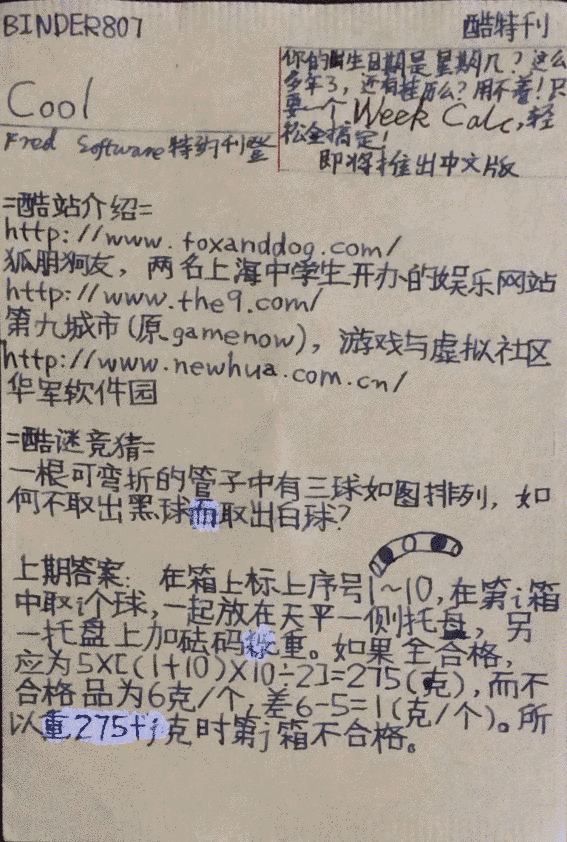 BINDER807
酷特刊
Cool
Fred Software特约刊登
你的出生日期是星期几？这么
多年了，还有挂历么？用不着！只
要一个Week Calc，轻
松全搞定！
即将推出中文版
=酷站介绍=
http://www.foxanddog.com/
狐朋狗友，两名上海中学生开办的娱乐网站
http://www.the9.com/
第九城市(原gamenow)，游戏与虚拟社区
http://www.newhua.com.cn/
华军软件园
=酷谜竞猜=
一根可弯折的管子中有三球如图排列，如
何不取出黑球而取出白球？
上期答案：在箱上标上序号1~10，在第i箱
中取i个球，一起放在天平一侧托盘，另
一托盘上加砝码称重。如果全合格，
应为5×[(1+10)×10÷2]=275(克)，而不
合格品为6克/个，差6-5=1(克/个)。所
以重275+j克时第j箱不合格。